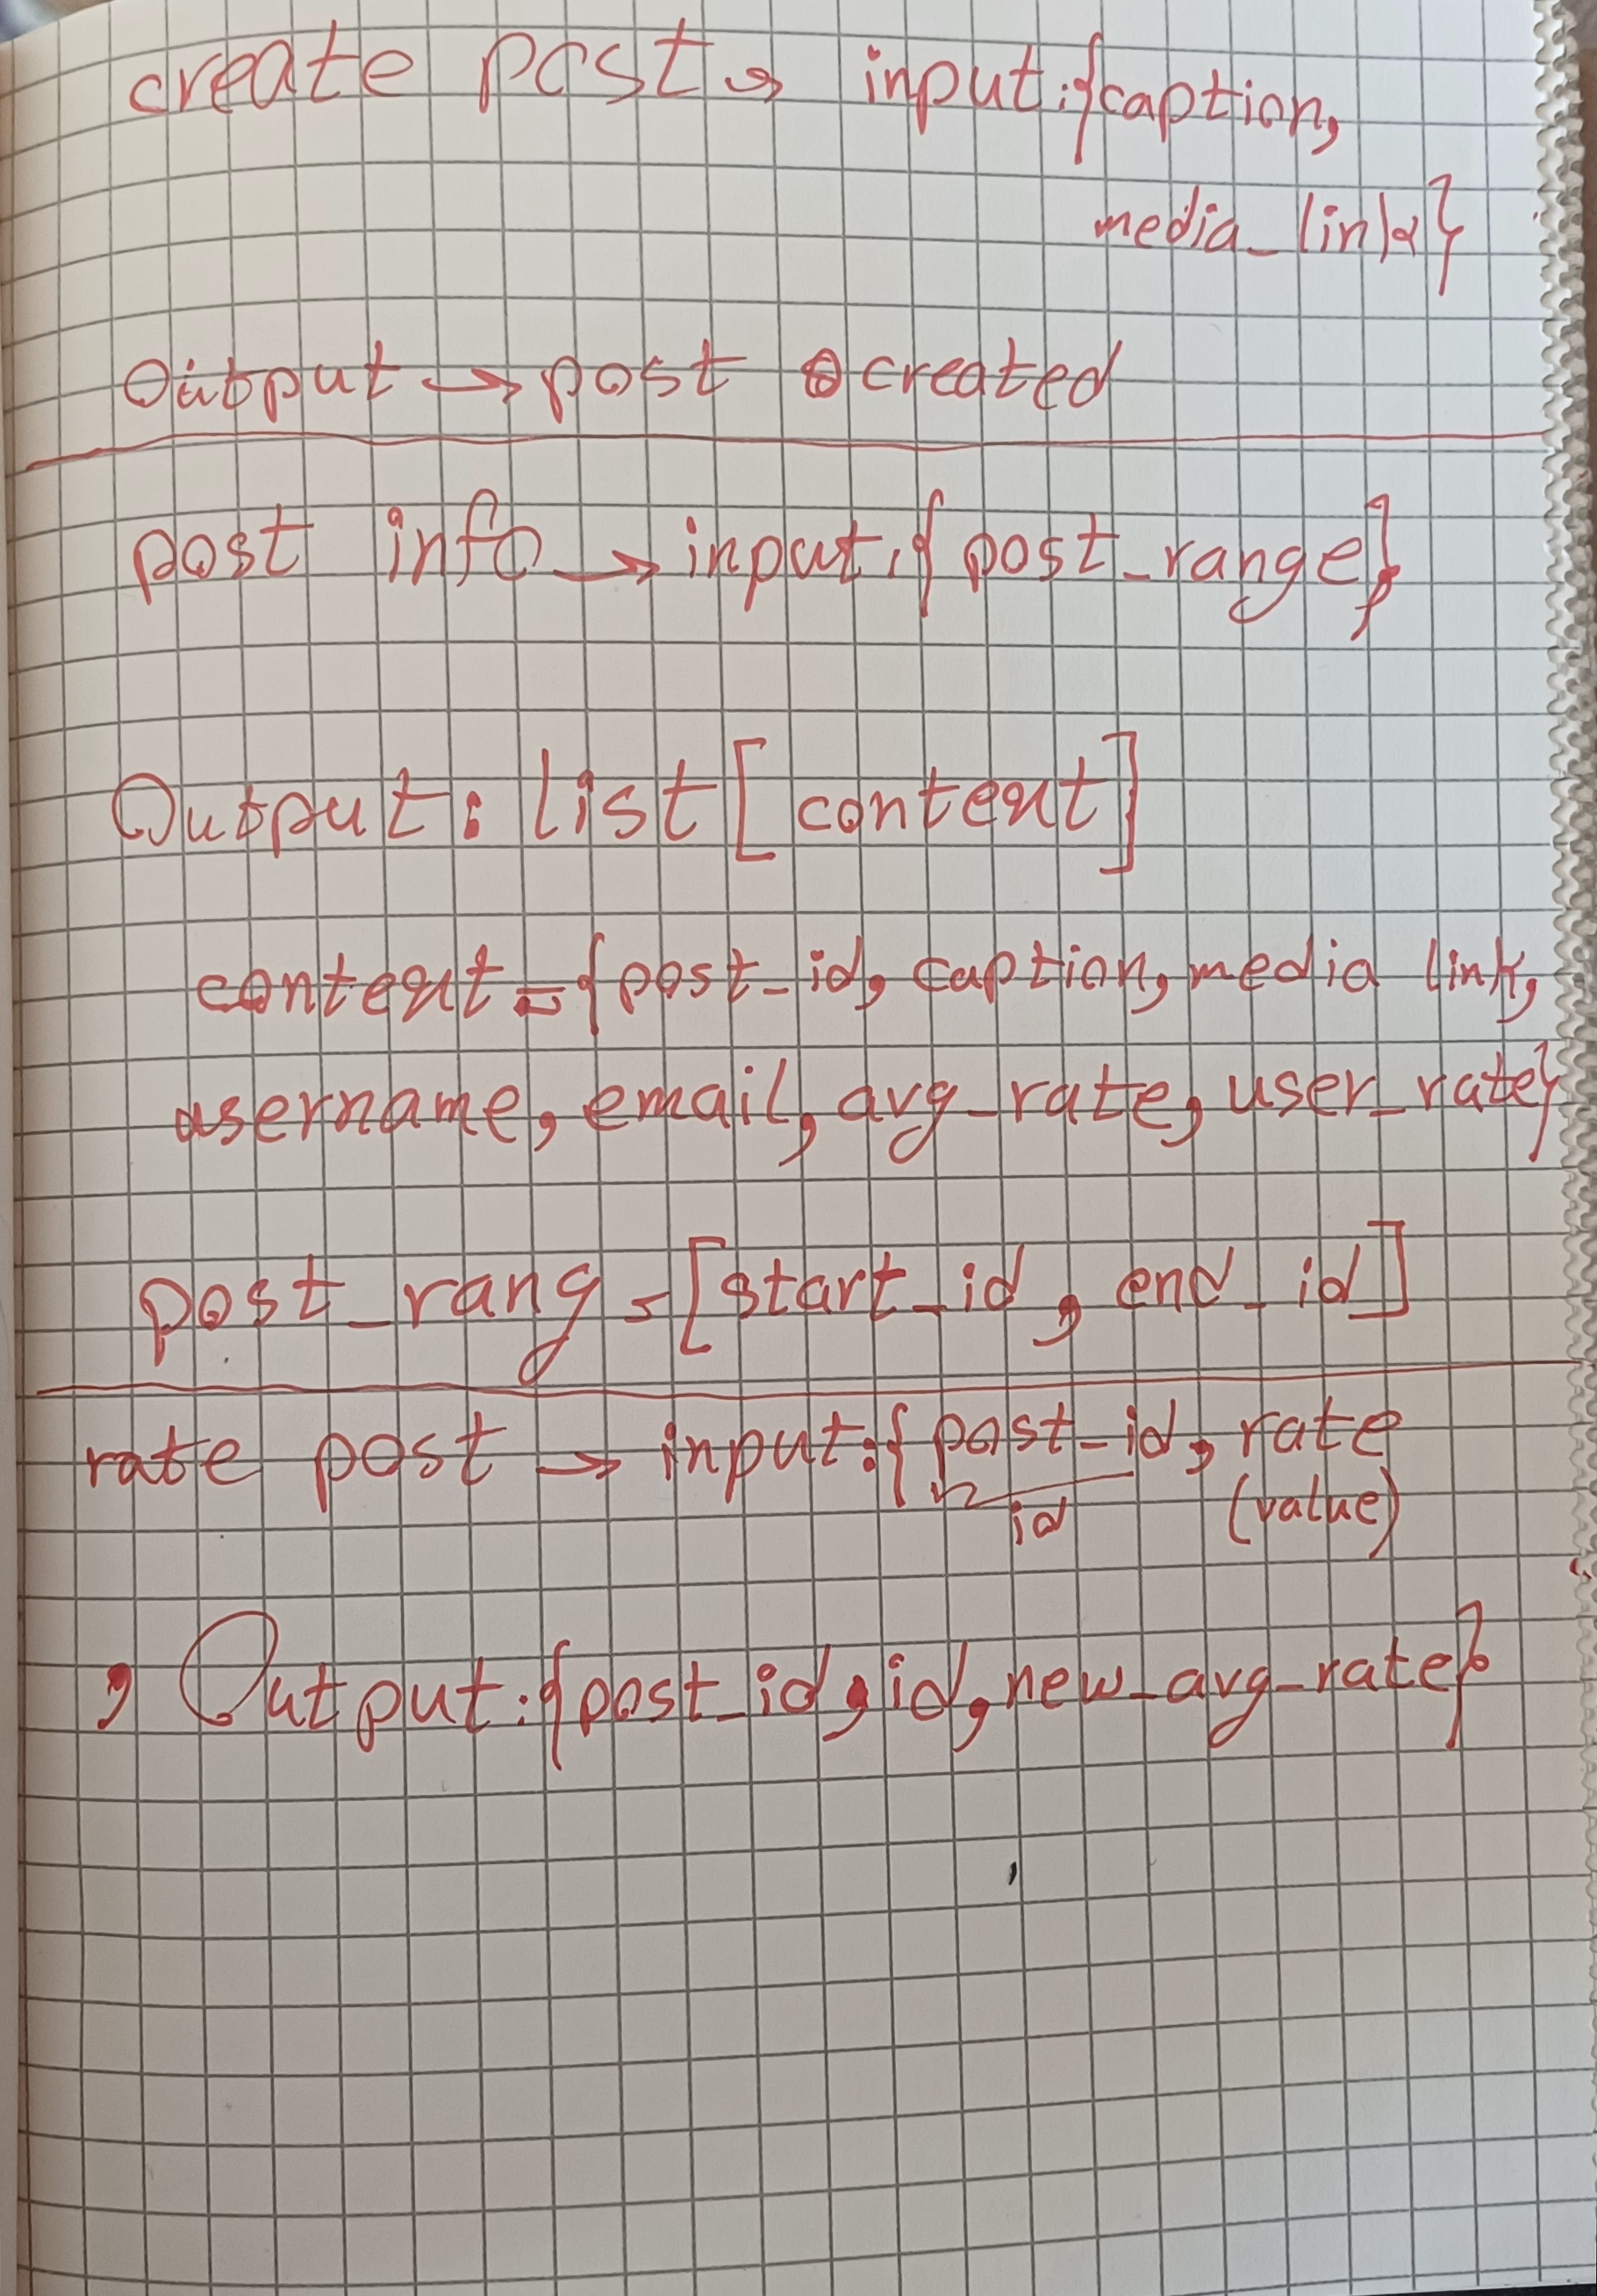 create post → input:{caption,
media_link}
Output → post created
post info → input:{post_range}
Output: list[content]
content={post_id, caption, media link,
username, email, avg_rate, user_rate}
post_rang = [start_id, end_id]
rate post → input:{post_id, rate
id (value)
, Output:{post_id, id, new_avg_rate}